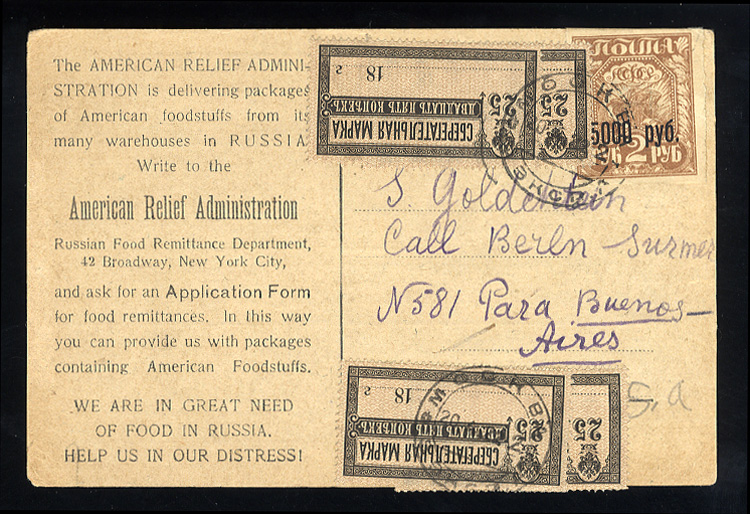 The AMERICAN RELIEF ADMINI-
STRATION is delivering packages
of American foodstuffs from its
many warehouses in RUSSIA
Write to the
American Relief Administration
Russian Food Remittance Department,
42 Broadway, New York City,
and ask for an Application Form
for food remittances. In this way
you can provide us with packages
containing American Foodstuffs.
WE ARE IN GREAT NEED
OF FOOD IN RUSSIA.
HELP US IN OUR DISTRESS!
СБЕРЕГАТЕЛЬНАЯ МАРКА
ДВАДЦАТЬ ПЯТЬ КОПѢЕКЪ
25
18
25
ПОЧТА
РСФСР
5000 руб.
2 РУБ
S. Goldenstein
Call Berln Surmer
N581 Para Buenos-
Aires
S.A
СБЕРЕГАТЕЛЬНАЯ МАРКА
ДВАДЦАТЬ ПЯТЬ КОПѢЕКЪ
25
18
25